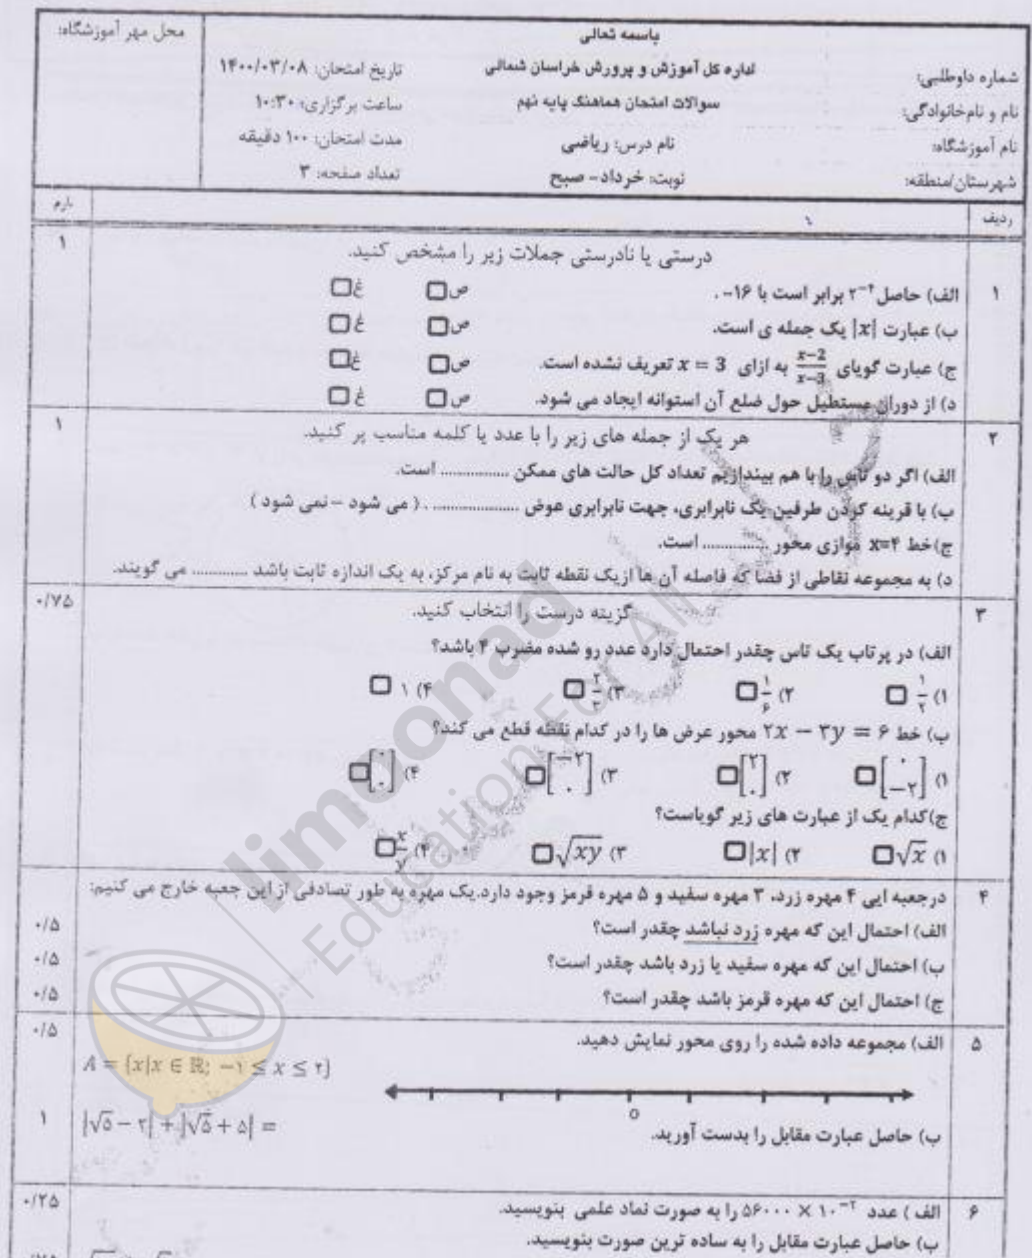 باسمه تعالی
اداره کل آموزش و پرورش خراسان شمالی
سوالات امتحان هماهنگ پایه نهم
نام درس: ریاضی
نوبت: خرداد- صبح
شماره داوطلبی:
نام و نام‌خانوادگی:
نام آموزشگاه:
شهرستان/منطقه:
تاریخ امتحان: ۱۴۰۰/۰۳/۰۸
ساعت برگزاری: ۱۰:۳۰
مدت امتحان: ۱۰۰ دقیقه
تعداد صفحه: ۳
محل مهر آموزشگاه:
ردیف بارم
درستی یا نادرستی جملات زیر را مشخص کنید. ۱
۱ الف) حاصل ۲⁻⁴ برابر است با ۱۶- . ص□ غ□
ب) عبارت |x| یک جمله ی است. ص□ غ□
ج) عبارت گویای (x−2)/(x−3) به ازای x = 3 تعریف نشده است. ص□ غ□
د) از دوران مستطیل حول ضلع آن استوانه ایجاد می شود. ص□ غ□
۲ هر یک از جمله های زیر را با عدد یا کلمه مناسب پر کنید. ۱
الف) اگر دو تاس را با هم بیندازیم تعداد کل حالت های ممکن ............... است.
ب) با قرینه کردن طرفین یک نابرابری، جهت نابرابری عوض ................... . ( می شود – نمی شود )
ج)خط x=۴ موازی محور ............... است.
د) به مجموعه نقاطی از فضا که فاصله آن ها ازیک نقطه ثابت به نام مرکز، به یک اندازه ثابت باشد ............ می گویند.
۳ گزینه درست را انتخاب کنید. ۰/۷۵
الف) در پرتاب یک تاس چقدر احتمال دارد عدد رو شده مضرب ۴ باشد؟
۱) ۱/۲ □ ۲) ۱/۶ □ ۳) ۲/۳ □ ۴) ۱ □
ب) خط ۲x − ۳y = ۶ محور عرض ها را در کدام نقطه قطع می کند؟
۱) [۰ −۲] □ ۲) [۲ ۰] □ ۳) [−۲ ۰] □ ۴) [۰ ۰] □
ج)کدام یک از عبارت های زیر گویاست؟
۱) √x □ ۲) |x| □ ۳) √xy □ ۴) x/y □
۴ درجعبه ایی ۴ مهره زرد، ۳ مهره سفید و ۵ مهره قرمز وجود دارد.یک مهره به طور تصادفی از این جعبه خارج می کنیم:
الف) احتمال این که مهره زرد نباشد چقدر است؟ ۰/۵
ب) احتمال این که مهره سفید یا زرد باشد چقدر است؟ ۰/۵
ج) احتمال این که مهره قرمز باشد چقدر است؟ ۰/۵
۵ الف) مجموعه داده شده را روی محور نمایش دهید. ۰/۵
A = {x|x ∈ ℝ; −۱ ≤ x ≤ ۲}
o
ب) حاصل عبارت مقابل را بدست آورید. |√۵ − ۳| + |√۵ + ۵| = ۱
۶ الف ) عدد ۵۶۰۰۰ × ۱۰⁻² را به صورت نماد علمی بنویسید. ۰/۲۵
ب) حاصل عبارت مقابل را به ساده ترین صورت بنویسید.
limoonad
Education For All